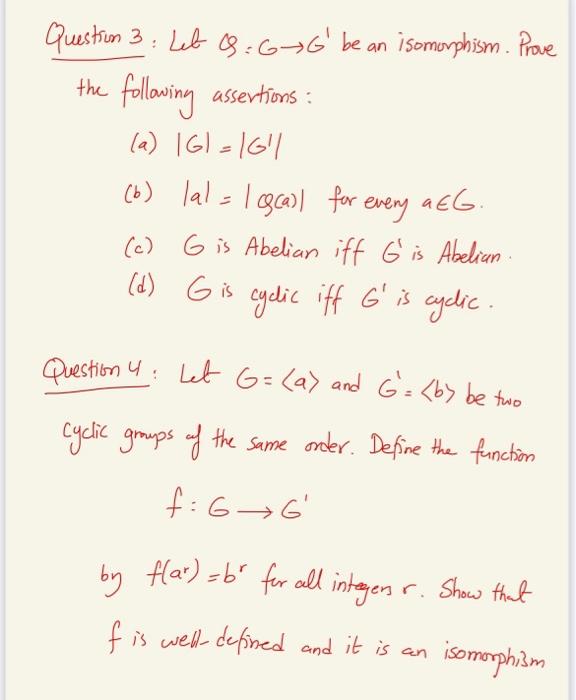 Question 3 : Let φ : G→G' be an isomorphism. Prove
the following assertions :
(a) |G| = |G'|
(b) |a| = |φ(a)| for every a∈G.
(c) G is Abelian iff G' is Abelian.
(d) G is cyclic iff G' is cyclic.
Question 4 : Let G = ⟨a⟩ and G' = ⟨b⟩ be two
cyclic groups of the same order. Define the function
f : G → G'
by f(aʳ) = bʳ for all integers r. Show that
f is well-defined and it is an isomorphism